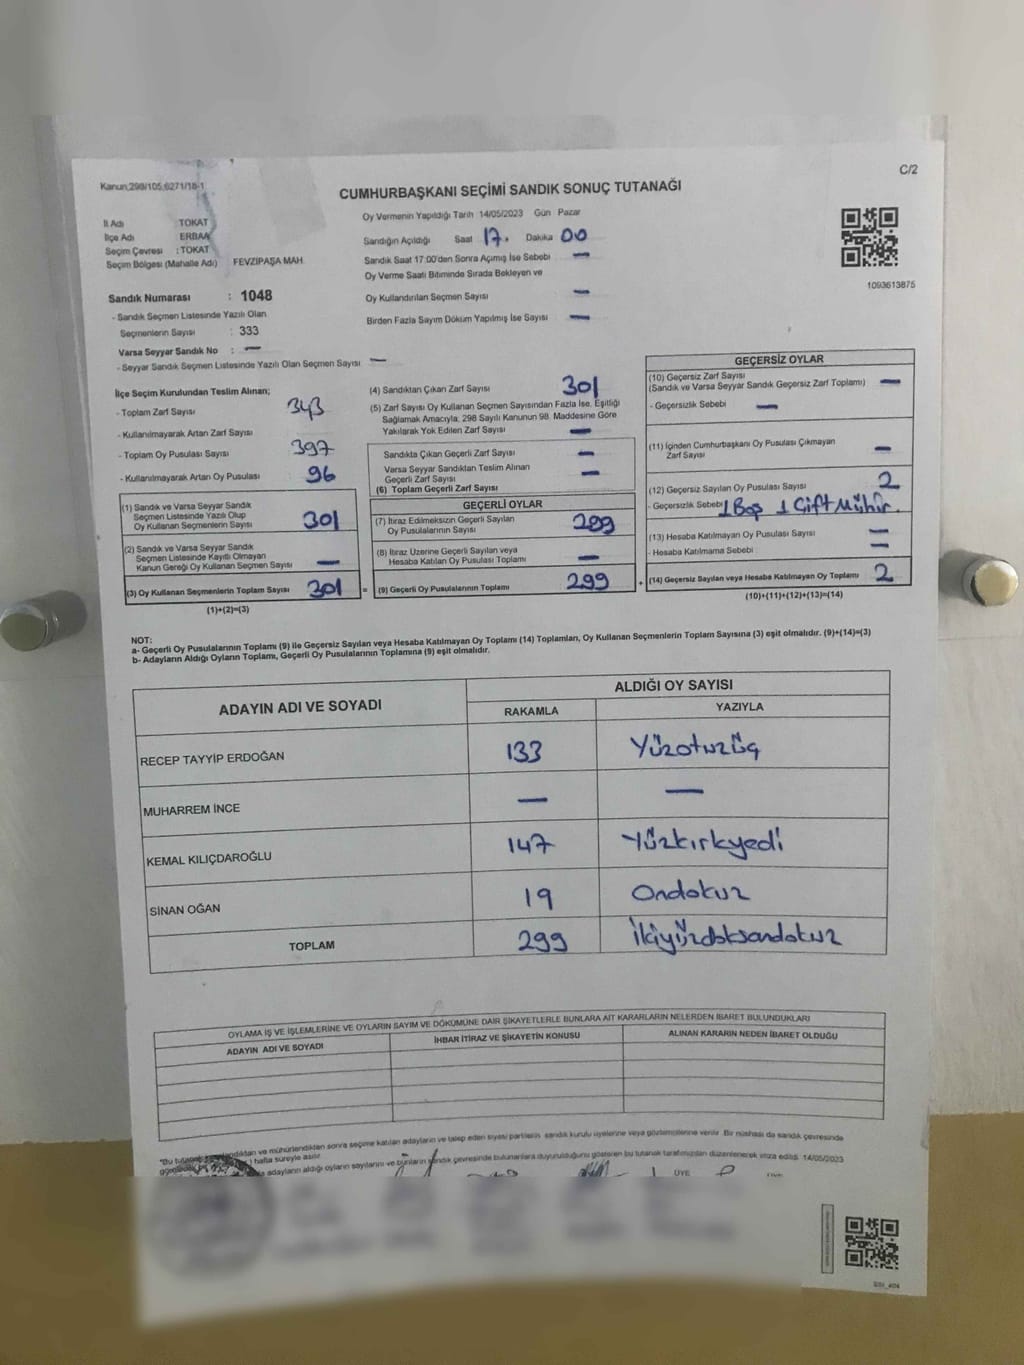 Kanun,298/105,6271/18-1
C/2
CUMHURBAŞKANI SEÇİMİ SANDIK SONUÇ TUTANAĞI
İl Adı : TOKAT
İlçe Adı ERBAA
Seçim Çevresi : TOKAT
Seçim Bölgesi (Mahalle Adı) FEVZİPAŞA MAH.
Oy Vermenin Yapıldığı Tarih 14/05/2023 Gün Pazar
Sandığın Açıldığı Saat 17. Dakika 00
Sandık Saat 17:00'den Sonra Açımış İse Sebebi —
Oy Verme Saati Bitiminde Sırada Bekleyen ve
Oy Kullandırılan Seçmen Sayısı —
Birden Fazla Sayım Döküm Yapılmış İse Sayısı —
1093613875
Sandık Numarası : 1048
- Sandık Seçmen Listesinde Yazılı Olan
Seçmenlerin Sayısı : 333
Varsa Seyyar Sandık No : —
- Seyyar Sandık Seçmen Listesinde Yazılı Olan Seçmen Sayısı —
İlçe Seçim Kurulundan Teslim Alınan;
- Toplam Zarf Sayısı 343
- Kullanılmayarak Artan Zarf Sayısı
- Toplam Oy Pusulası Sayısı 397
- Kullanılmayarak Artan Oy Pusulası 96
(1) Sandık ve Varsa Seyyar Sandık
Seçmen Listesinde Yazılı Olup
Oy Kullanan Seçmenlerin Sayısı 301
(2) Sandık ve Varsa Seyyar Sandık
Seçmen Listesinde Kayıtlı Olmayan
Kanun Gereği Oy Kullanan Seçmen Sayısı —
(3) Oy Kullanan Seçmenlerin Toplam Sayısı 301 =
(1)+(2)=(3)
(4) Sandıktan Çıkan Zarf Sayısı 301
(5) Zarf Sayısı Oy Kullanan Seçmen Sayısından Fazla İse, Eşitliği
Sağlamak Amacıyla; 298 Sayılı Kanunun 98. Maddesine Göre
Yakılarak Yok Edilen Zarf Sayısı —
Sandıkta Çıkan Geçerli Zarf Sayısı —
Varsa Seyyar Sandıktan Teslim Alınan
Geçerli Zarf Sayısı —
(6) Toplam Geçerli Zarf Sayısı
GEÇERLİ OYLAR
(7) İtiraz Edilmeksizin Geçerli Sayılan
Oy Pusulalarının Sayısı 299
(8) İtiraz Üzerine Geçerli Sayılan veya
Hesaba Katılan Oy Pusulası Toplamı —
(9) Geçerli Oy Pusulalarının Toplamı 299 +
GEÇERSİZ OYLAR
(10) Geçersiz Zarf Sayısı
(Sandık ve Varsa Seyyar Sandık Geçersiz Zarf Toplamı) —
- Geçersizlik Sebebi —
(11) İçinden Cumhurbaşkanı Oy Pusulası Çıkmayan
Zarf Sayısı —
(12) Geçersiz Sayılan Oy Pusulası Sayısı 2
- Geçersizlik Sebebi 1 Boş 1 Çift Mühür.
(13) Hesaba Katılmayan Oy Pusulası Sayısı —
- Hesaba Katılmama Sebebi —
(14) Geçersiz Sayılan veya Hesaba Katılmayan Oy Toplamı 2
(10)+(11)+(12)+(13)=(14)
NOT:
a- Geçerli Oy Pusulalarının Toplamı (9) ile Geçersiz Sayılan veya Hesaba Katılmayan Oy Toplamı (14) Toplamları, Oy Kullanan Seçmenlerin Toplam Sayısına (3) eşit olmalıdır. (9)+(14)=(3)
b- Adayların Aldığı Oyların Toplamı, Geçerli Oy Pusulalarının Toplamına (9) eşit olmalıdır.
ADAYIN ADI VE SOYADI
ALDIĞI OY SAYISI
RAKAMLA YAZIYLA
RECEP TAYYİP ERDOĞAN 133 Yüzotuzüç
MUHARREM İNCE — —
KEMAL KILIÇDAROĞLU 147 Yüzkırkyedi
SİNAN OĞAN 19 Ondokuz
TOPLAM 299 İkiyüzdoksandokuz
OYLAMA İŞ VE İŞLEMLERİNE VE OYLARIN SAYIM VE DÖKÜMÜNE DAİR ŞİKAYETLERLE BUNLARA AİT KARARLARIN NELERDEN İBARET BULUNDUKLARI
ADAYIN ADI VE SOYADI İHBAR İTİRAZ VE ŞİKAYETİN KONUSU ALINAN KARARIN NEDEN İBARET OLDUĞU
"Bu tutanak ve mühürlendikten sonra seçime katılan adayların ve talep eden siyasi partilerin sandık kurulu üyelerine veya gözlemcilerine verilir. Bir nüshası da sandık çevresinde
hafta süreyle asılır.
adayların aldığı oyların sayılarını ve bunların sandık çevresinde bulunanlara duyurulduğunu gösteren bu tutanak tarafımızdan düzenlenerek imza edildi. 14/05/2023
ÜYE